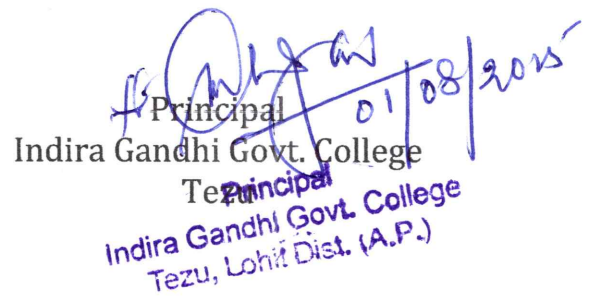 01/08/2015
Principal
Indira Gandhi Govt. College
Tezu
Principal
Indira Gandhi Govt. College
Tezu, Lohit Dist. (A.P.)